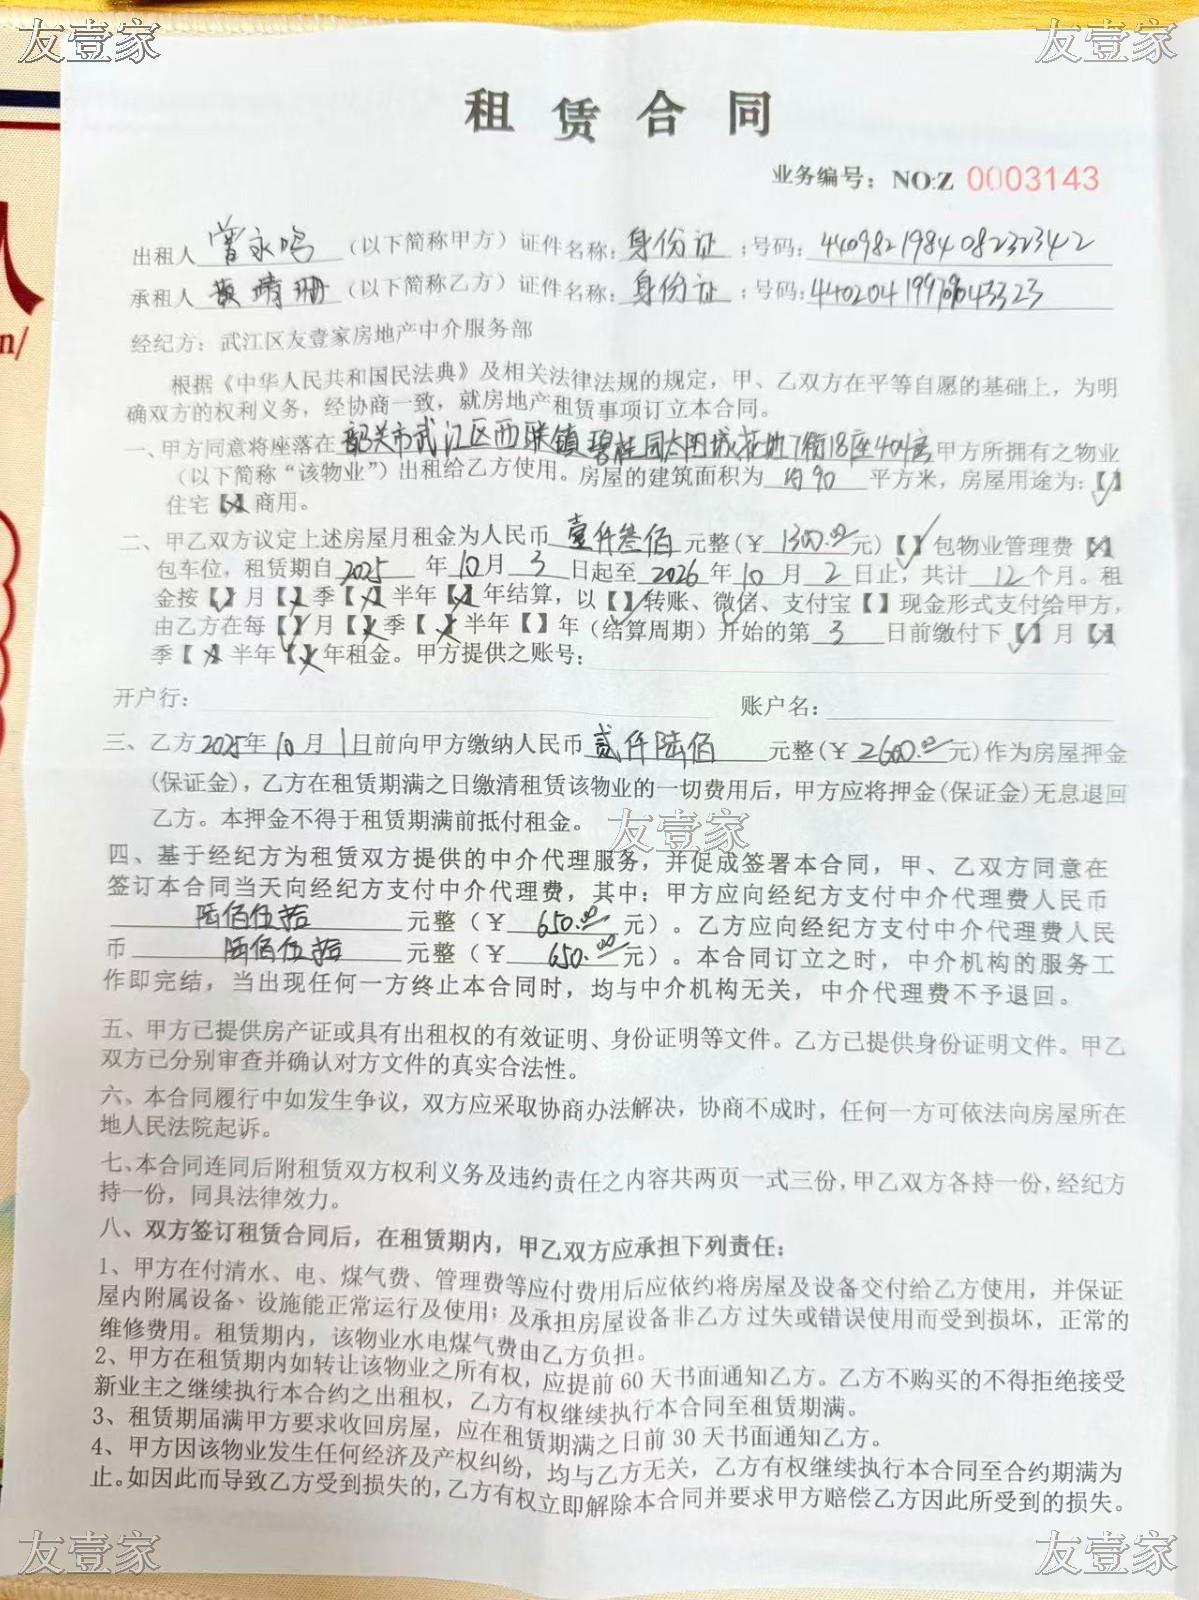 友壹家 友壹家
租赁合同
业务编号：NO:Z 0003143
出租人 曾永鸣 （以下简称甲方）证件名称：身份证；号码：440982198408232342
承租人 黄靖珊 （以下简称乙方）证件名称：身份证；号码：
经纪方：武江区友壹家房地产中介服务部
根据《中华人民共和国民法典》及相关法律法规的规定，甲、乙双方在平等自愿的基础上，为明
确双方的权利义务，经协商一致，就房地产租赁事项订立本合同。
一、甲方同意将座落在 韶关市武江区西联镇碧桂园太阳城花地7街18座404房 甲方所拥有之物业
（以下简称“该物业”）出租给乙方使用。房屋的建筑面积为 约90 平方米，房屋用途为：【✓】
住宅【×】商用。
二、甲乙双方议定上述房屋月租金为人民币 壹仟叁佰 元整(￥ 1300.00 元)【✓】包物业管理费【×】
包车位，租赁期自 2025 年 10 月 3 日起至 2026 年 10 月 2 日止，共计 12 个月。租
金按【✓】月【×】季【×】半年【×】年结算，以【✓】转账、微信、支付宝【】现金形式支付给甲方，
由乙方在每【✓】月【×】季【×】半年【】年（结算周期）开始的第 3 日前缴付下【✓】月【×】
季【×】半年【×】年租金。甲方提供之账号：
开户行： 账户名：
三、乙方 2025年 10 月 1 日前向甲方缴纳人民币 贰仟陆佰 元整(￥ 2600.00 元)作为房屋押金
(保证金)，乙方在租赁期满之日缴清租赁该物业的一切费用后，甲方应将押金(保证金)无息退回
乙方。本押金不得于租赁期满前抵付租金。
友壹家
四、基于经纪方为租赁双方提供的中介代理服务，并促成签署本合同，甲、乙双方同意在
签订本合同当天向经纪方支付中介代理费，其中：甲方应向经纪方支付中介代理费人民币
陆佰伍拾 元整（￥ 650.00 元）。乙方应向经纪方支付中介代理费人民
币 陆佰伍拾 元整（￥ 650.00 元）。本合同订立之时，中介机构的服务工
作即完结，当出现任何一方终止本合同时，均与中介机构无关，中介代理费不予退回。
五、甲方已提供房产证或具有出租权的有效证明、身份证明等文件。乙方已提供身份证明文件。甲乙
双方已分别审查并确认对方文件的真实合法性。
六、本合同履行中如发生争议，双方应采取协商办法解决，协商不成时，任何一方可依法向房屋所在
地人民法院起诉。
七、本合同连同后附租赁双方权利义务及违约责任之内容共两页一式三份，甲乙双方各持一份，经纪方
持一份，同具法律效力。
八、双方签订租赁合同后，在租赁期内，甲乙双方应承担下列责任：
1、甲方在付清水、电、煤气费、管理费等应付费用后应依约将房屋及设备交付给乙方使用，并保证
屋内附属设备、设施能正常运行及使用；及承担房屋设备非乙方过失或错误使用而受到损坏，正常的
维修费用。租赁期内，该物业水电煤气费由乙方负担。
2、甲方在租赁期内如转让该物业之所有权，应提前 60 天书面通知乙方。乙方不购买的不得拒绝接受
新业主之继续执行本合约之出租权，乙方有权继续执行本合同至租赁期满。
3、租赁期届满甲方要求收回房屋，应在租赁期满之日前 30 天书面通知乙方。
4、甲方因该物业发生任何经济及产权纠纷，均与乙方无关，乙方有权继续执行本合同至合约期满为
止。如因此而导致乙方受到损失的，乙方有权立即解除本合同并要求甲方赔偿乙方因此所受到的损失。
友壹家 友壹家